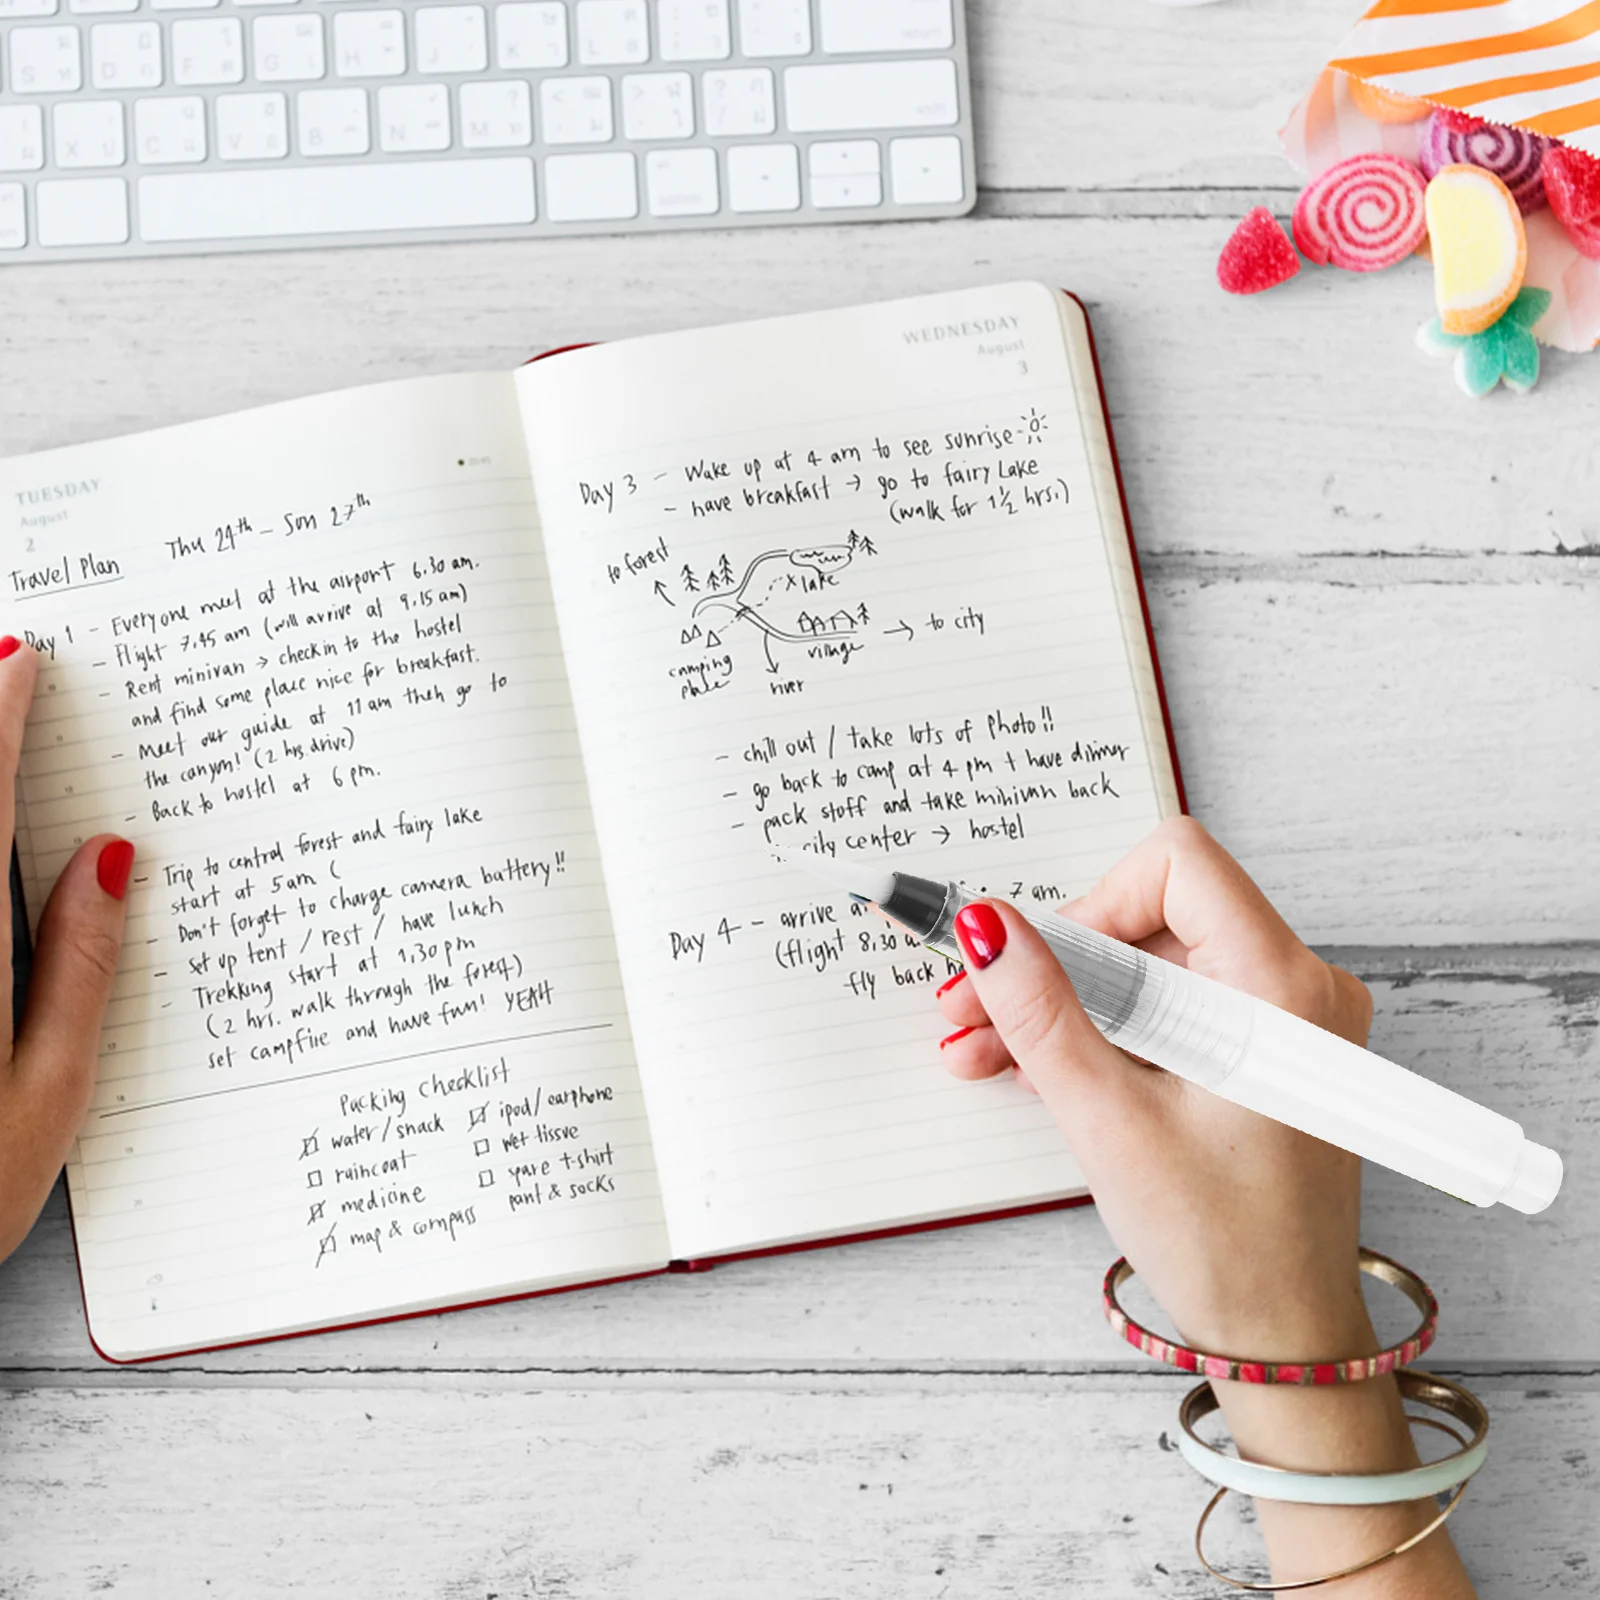 TUESDAY
August
2
Thu 24th – Sun 27th
Travel Plan
Day 1 – Everyone meet at the airport 6.30 am.
– Flight 7.45 am (will arrive at 9.15 am)
– Rent minivan → checkin to the hostel
and find some place nice for breakfast.
– Meet our guide at 11 am then go to
the canyon! (2 hrs. drive)
– Back to hostel at 6 pm.
– Trip to central forest and fairy lake
start at 5 am (
– Don't forget to charge camera battery!!
– set up tent / rest / have lunch
– Trekking start at 1,30 pm
(2 hrs. walk through the forest)
set campfire and have fun! YEAH
Packing checklist
water/snack
raincoat
medicine
map & compass
ipod/earphone
wet tissue
spare t-shirt
pant & socks
WEDNESDAY
August
3
Day 3 – Wake up at 4 am to see sunrise
– have breakfast → go to fairy Lake
(walk for 1½ hrs.)
to forest
lake
→ to city
village
camping
place
river
– chill out / take lots of photo!!
– go back to camp at 4 pm + have dinner
– pack stuff and take minivan back
city center → hostel
Day 4 – arrive 7 am.
(flight 8,30
fly back
S D F G H J K L
X C V B N M